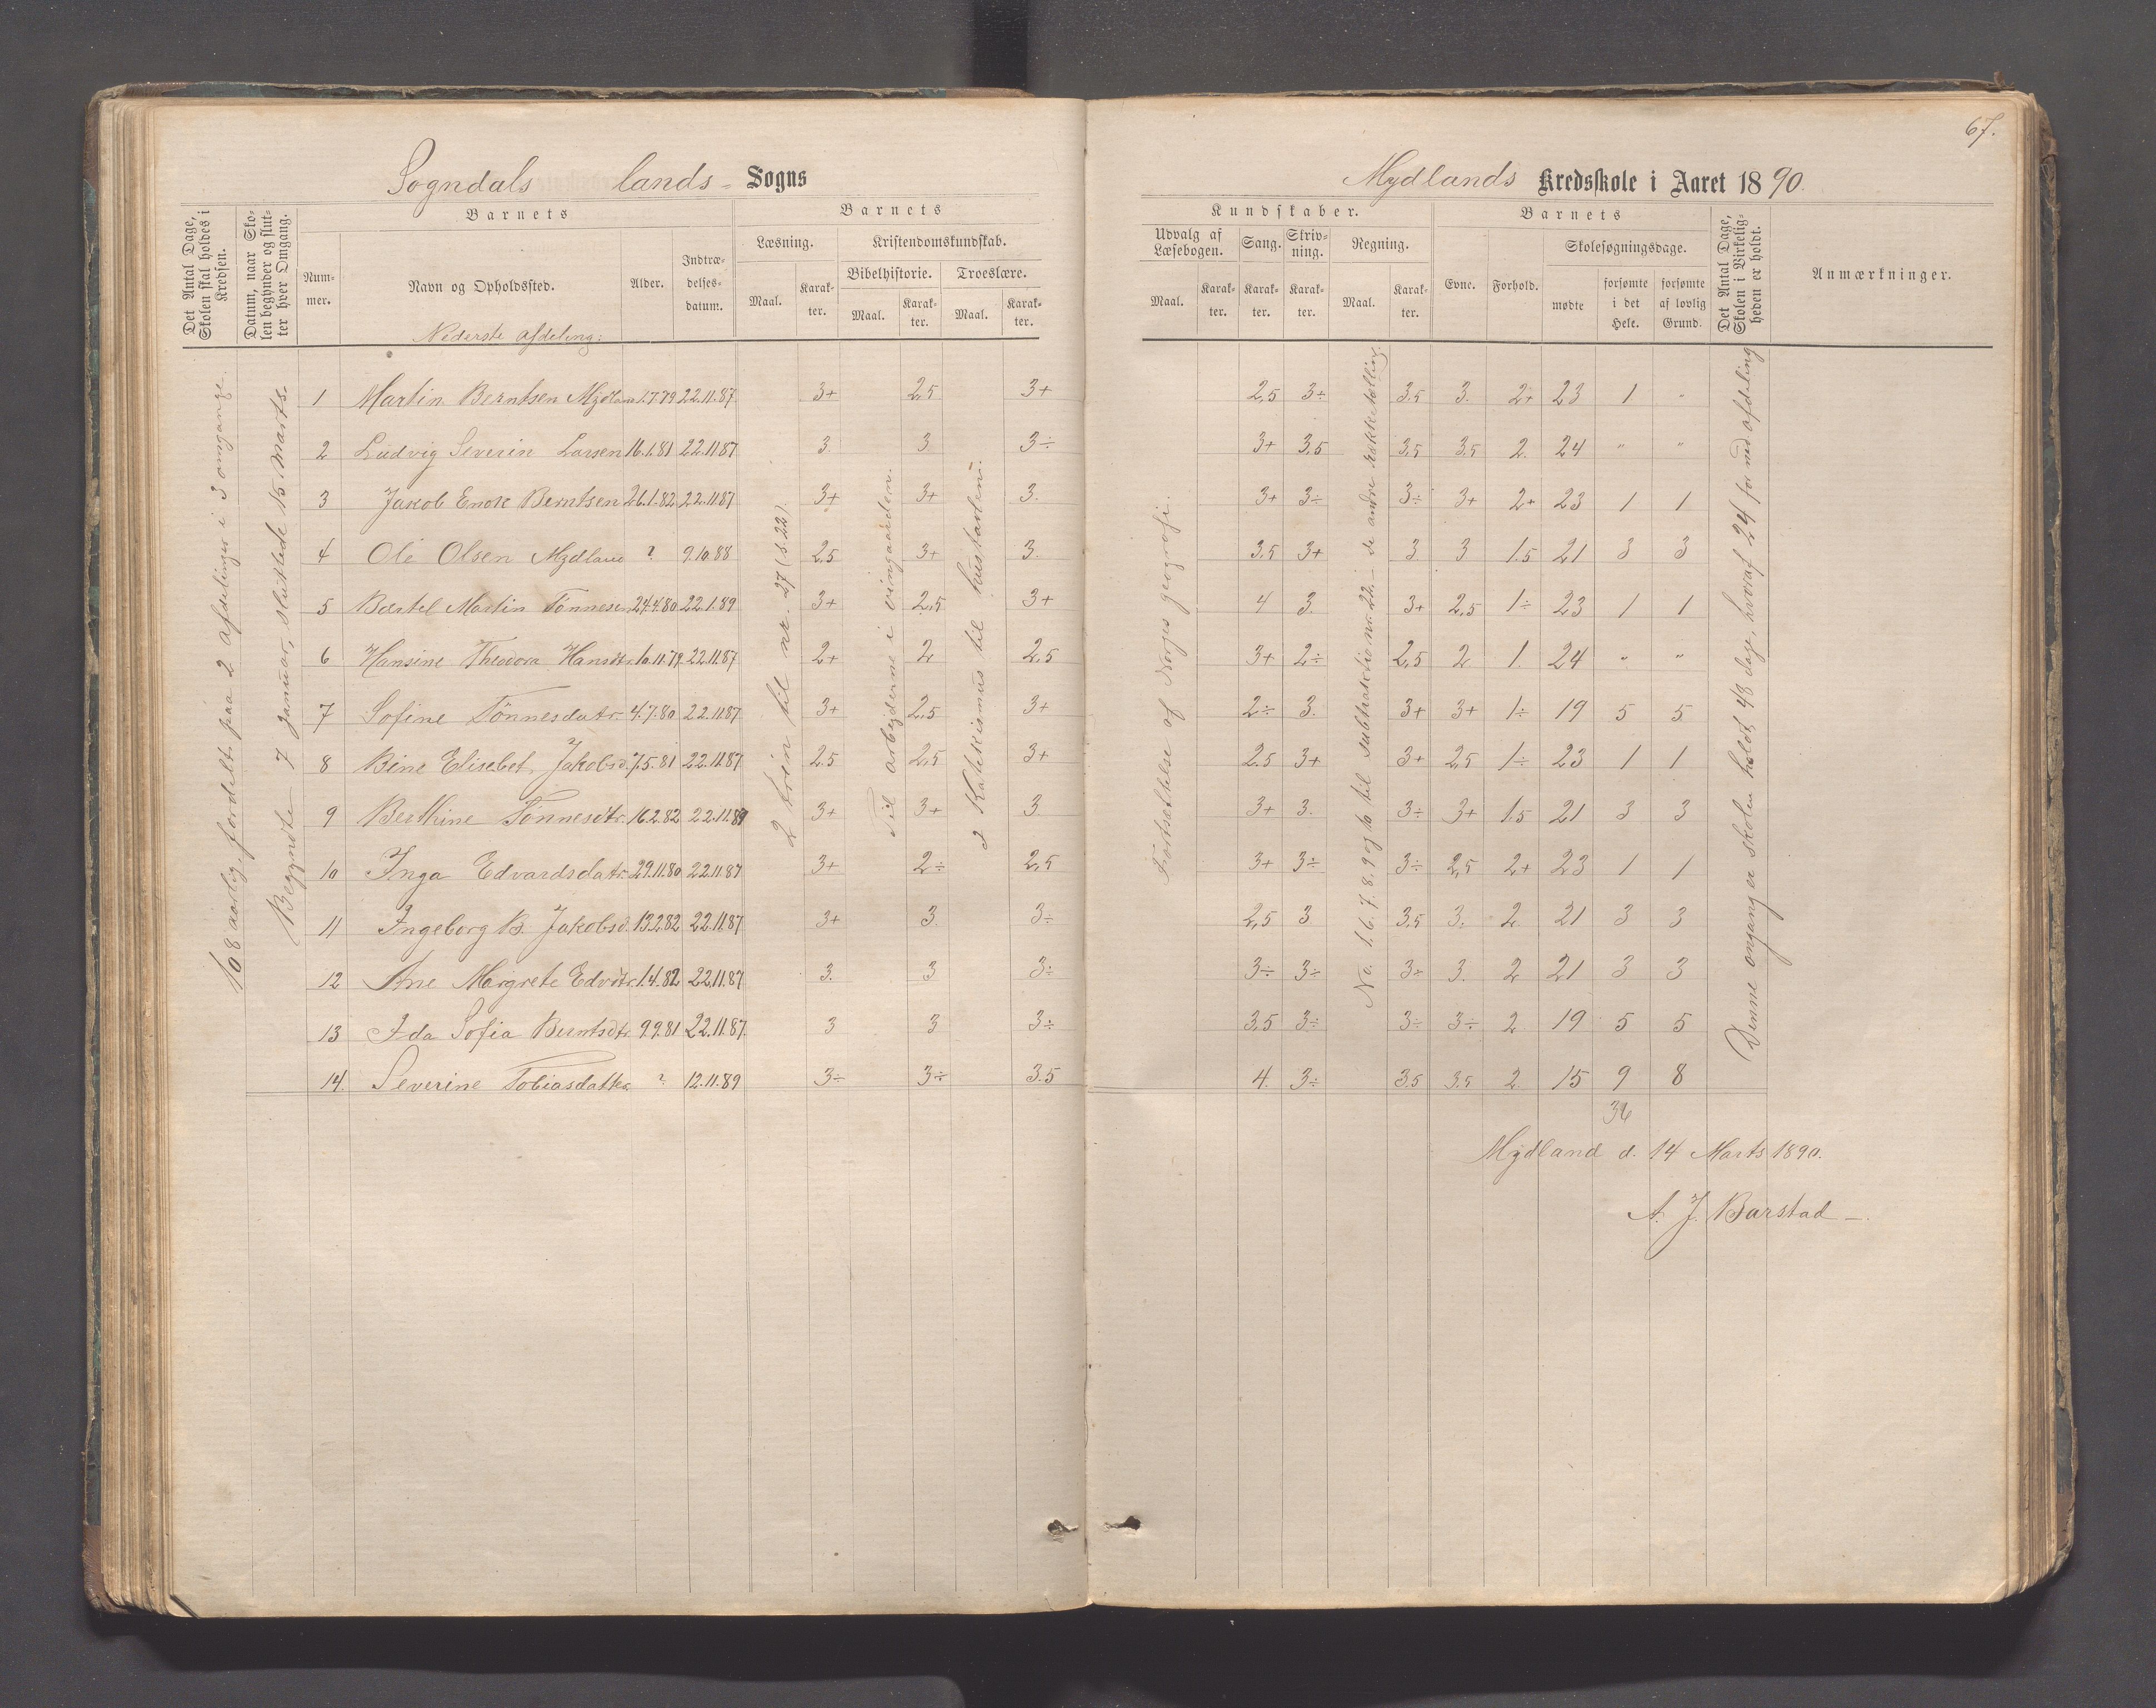 67.
Sogndals lands- Sogns
Mydlands Kredsskole i Aaret 1890.
Det Antal Dage, Skolen skal holdes i Kredsen.
Datum, naar Skolen begynder og slutter hver Omgang.
Barnets
Nummer.
Navn og Opholdssted.
Alder.
Indtrædelsesdatum.
Barnets
Læsning.
Kristendomskundskab.
Bibelhistorie.
Troeslære.
Maal.
Karakter.
Maal.
Karakter.
Maal.
Karakter.
Kundskaber.
Udvalg af Læsebogen.
Sang.
Skrivning.
Regning.
Maal.
Karakter.
Karakter.
Karakter.
Maal.
Karakter.
Barnets
Evne.
Forhold.
Skolesøgningsdage.
mødte
forsømte i det Hele.
forsømte af lovlig Grund.
Det Antal Dage, Skolen i Virkeligheden er holdt.
Anmærkninger.
Nederste afdeling:
108 aarlig, fordelt paa 2 afdelinger i 3 omgange.
Begyndte 7 januar, sluttede 15 marts.
2 trin til nr. 27 (s. 22).
Til arbejderne i vingaarden.
Katekismus til hustavlen.
Fortsættelse af Norges geografi.
No. 1. 6. 7. 8. 9 og 10 til subtraktio nr. 22. – de andre
Denne omgang er skolen holdt 48 dage, hvoraf 24 for ned afdeling
1 Martin Berntsen Mydland 1.7.79 22.11.87 3+ 2,5 3+ 2,5 3÷ 3.5 3. 2+ 23 1 "
2 Ludvig Severin Larsen 16.1.81 22.11.87 3. 3. 3÷ 3+ 3,5 3,5 3,5 2. 24 " "
3 Jakob Enok Berntsen 26.1.82 22.11.87 3+ 3+ 3. 3+ 3÷ 3÷ 3+ 2+ 23 1 1
4 Ole Olsen Mydland ? 9.10.88 2,5 3+ 3. 3.5 3+ 3 3 1.5 21 3 3
5 Bærtel Martin Tønnesen 24.4.80 22.1.89 3+ 2,5 3+ 4 3. 3+ 2,5 1÷ 23 1 1
6 Hansine Theodora Hansdtr. 10.11.79 22.11.87 2+ 2 2,5 3+ 2÷ 2,5 2 1. 24 " "
7 Sofine Tønnesdatr. 4.7.80 22.11.87 3+ 2,5 3+ 2÷ 3. 3+ 3+ 1÷ 19 5 5
8 Bine Elisebet Jakobsd. 7.5.81 22.11.87 2.5 2,5 3+ 2.5 3+ 3+ 2,5 1÷ 23 1 1
9 Berthine Tønnesdtr. 16.2.82 22.11.89 3+ 3+ 3. 3+ 3. 3÷ 3+ 1.5 21 3 3
10 Inga Edvardsdatr. 29.11.80 22.11.87 3+ 2÷ 2,5 3+ 3÷ 3÷ 2,5 2+ 23 1 1
11 Ingeborg B. Jakobsd. 13.2.82 22.11.87 3+ 3. 3÷ 2,5 3 3,5 3. 2. 21 3 3
12 Ane Margrete Edvdtr. 1.4.82 22.11.87 3. 3 3÷ 3÷ 3÷ 3÷ 3. 2 21 3 3
13 Ida Sofia Berntsdtr. 9.9.81 22.11.87. 3 3 3÷ 3,5 3÷ 3÷ 3÷ 2 19 5 5
14. Severine Tobiasdatter ? 12.11.89 3÷ 3÷ 3.5 4. 3÷ 3.5 3.5 2. 15 9 8
36
Mydland d. 14 Marts 1890.
A. J. Barstad –.